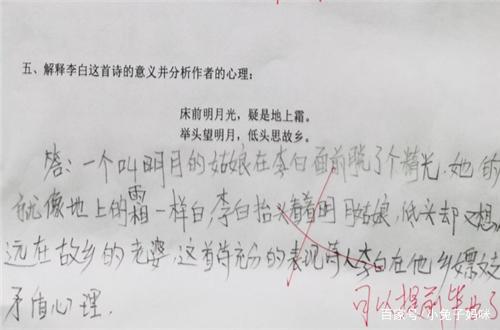 五、解释李白这首诗的意义并分析作者的心理:
床前明月光，疑是地上霜。
举头望明月，低头思故乡。
答:一个叫明月的姑娘在李白面前脱了个精光.她的
就像地上的霜一样白,李白抬头看着明月姑娘,低头却又想
远在故乡的老婆.这首诗充分的表现诗人李白在他乡嫖
矛盾心理.
可以提前毕业了
百家号/小兔子妈咪